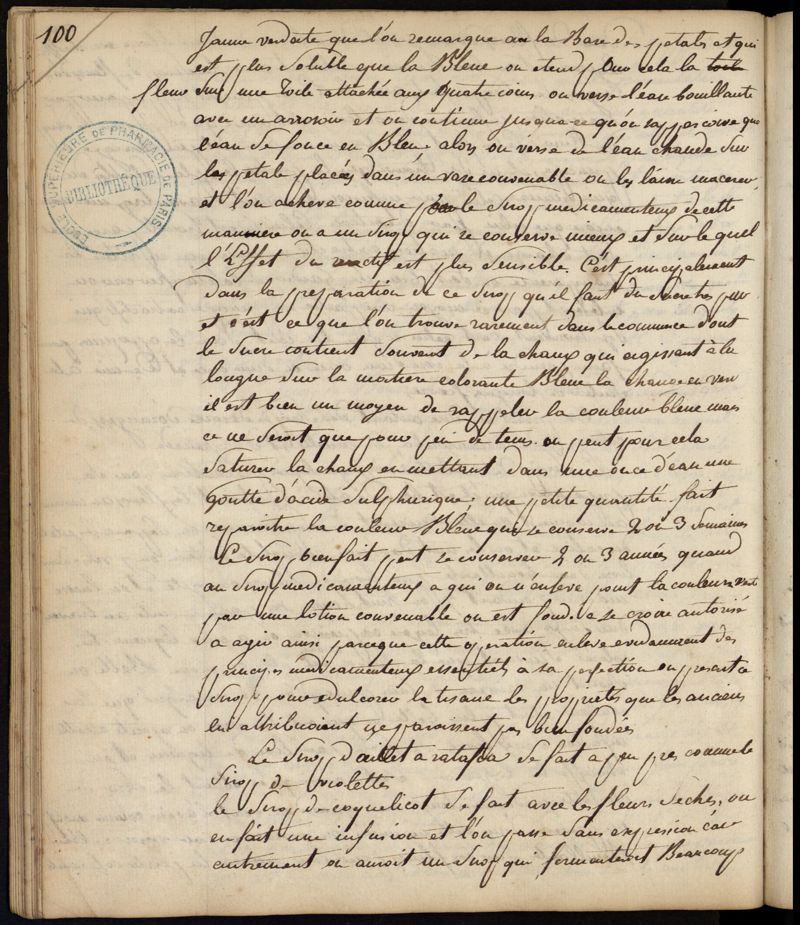 100
Jaune verdatre que l'on remarque au la Base des petales et qui
est plus soluble que la Bleue on etend pour cela la toile
fleur sur une Toile attachée aux quatre coins on verse l'eau bouillante
avec un arrosoir et on continue jusqu'a ce qu'on s'apperçoive que
l'eau se fonce en Bleu. alors on verse de l'eau chaude sur
les petale placées dans un vase convenable on les laisse macerer,
et l'on acheve comme pour le Sirop medicamenteux de cette
maniere on a un Sirop qui se conserve mieux et sur le quel
l'Effet du reactif est plus sensible. C'est principalement
dans la preparation de ce Sirop qu'il faut du sucre tres pur
et c'est ce que l'on trouve rarement dans le commerce dont
le sucre contient souvent de la chaux qui agissant à la
longue sur la matiere colorante Bleue la change en vert
il est bien un moyen de rappeler la couleur bleue mais
ce ne seroit que pour peu de tems. on peut pour cela
saturer la chaux en mettant dans une once d'eau une
goutte d'acide Sulphurique; une petite quantité fait
reparoitre la couleur Bleue qui se conserve 2 ou 3 semaines
Le Sirop bien fait peut se conserver 2 ou 3 années quand
au Sirop medicamenteux a qui on n'enleve point la couleur verte
par une lotion convenable on est fondé a se croire autorisé
a agir ainsi parceque cette operation enleve evidamment des
principes medicamenteux essentiels à sa perfection on prescrit ce
Sirop pour edulcorer la tisane les proprietés que les anciens
lui attribuoient ne paroissent pas bien fondées
Le Sirop d'œillet a ratafia se fait a peu pres comme le
Sirop de violettes
le Sirop de coquelicot se fait avec les fleurs sèches, on
en fait une infusion et l'on passe sans expression car
autrement on auroit un Sirop qui fermenteroit Beaucoup
ECOLE SUPERIEURE DE PHARMACIE DE PARIS
BIBLIOTHÈQUE